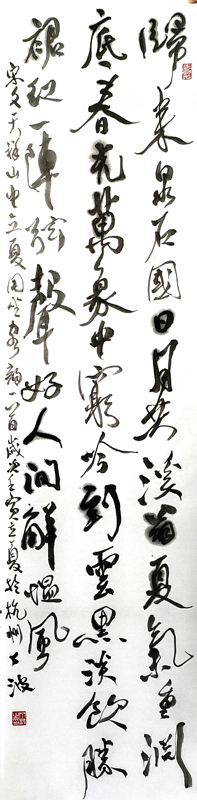 歸來泉石國日月共溪翁夏氣重淵
底春光萬象中窮吟到雲黑淡飲勝
裙紅一陣弦聲好人間解慍風
宋文天祥山中立夏用坐客韻一首歲次壬寅立夏於杭州大波